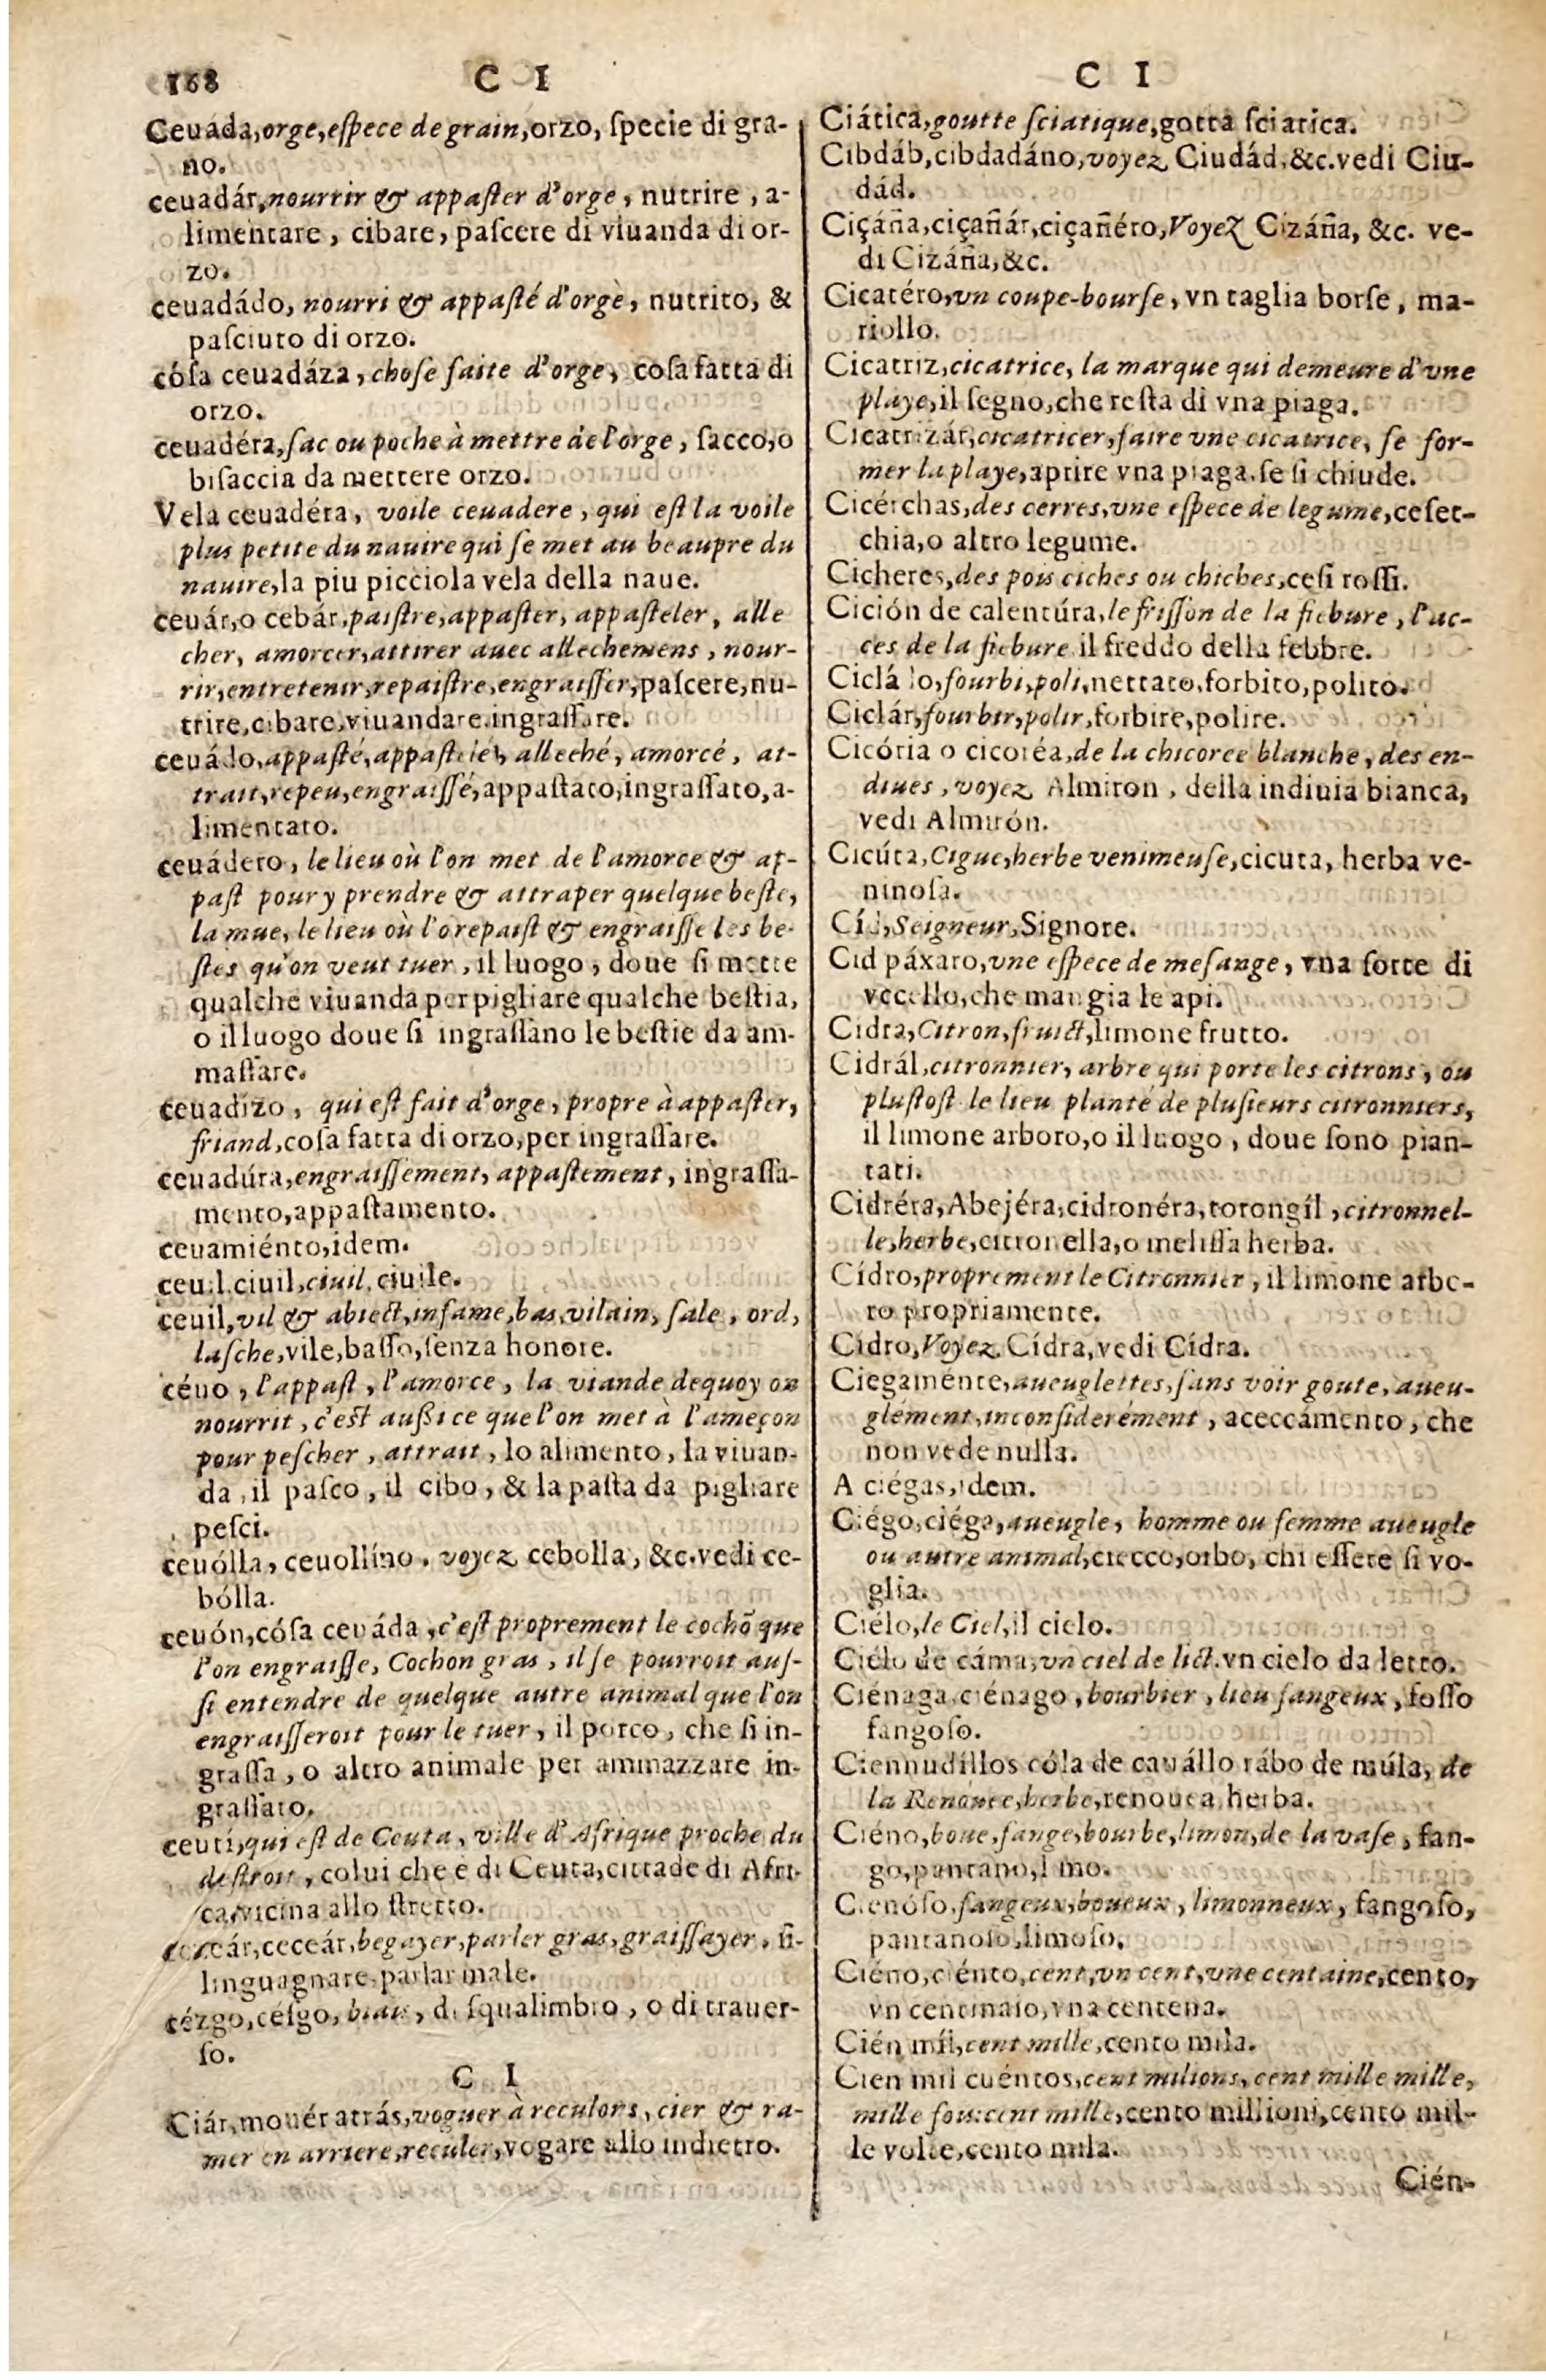 168
C I
Ceuáda,orge,eſpece de grain,orzo, ſpecie di gra-
no.
ceuadár,nourrir & appaſter d'orge, nutrire, a-
limentare, cibare, paſcere di viuanda di or-
zo.
ceuadádo, nourri & appaſté d'orge, nutrito, &
paſciuto di orzo.
cóſa ceuadáza, choſe faite d'orge, coſa fatta di
orzo.
ceuadéra, ſac ou poche à mettre de l'orge, ſacco,o
biſaccia da mettere orzo.
Vela ceuadéra, voile ceuadere, qui eſt la voile
plus petite du nauire qui ſe met au beaupre du
nauire,la piu picciola vela della naue.
ceuár,o cebár,paiſtre,appaſter, appaſteler, alle
cher, amorcer,attirer auec allechemens, nour-
rir,entretenir,repaiſtre,engraiſſer,paſcere,nu-
trire,cibare,viuandare,ingraſſare.
ceuádo,appaſté,appaſtelé, alleché, amorcé, at-
trait,repeu,engraiſſé,appaſtato,ingraſſato,a-
limentato.
ceuádero, le lieu où l'on met de l'amorce & ap-
paſt pour y prendre & attraper quelque beſte,
la mue, le lieu où l'õ repaiſt & engraiſſe les be-
ſtes qu'on veut tuer, il luogo, doue ſi mette
qualche viuanda per pigliare qualche beſtia,
o il luogo doue ſi ingraſſano le beſtie da am-
maſſare.
ceuadízo, qui eſt fait d'orge, propre à appaſter,
friand,coſa fatta di orzo,per ingraſſare.
ceuadúra,engraiſſement, appaſtement, ingraſſa-
mento,appaſtamento.
ceuamiénto,idem.
ceuil.ciuil,ciuil, ciuile.
ceuil,vil & abiect,infame,bas,vilain, ſale, ord,
laſche,vile,baſſo,ſenza honore.
céuo, l'appaſt, l'amorce, la viande dequoy on
nourrit, c'eſt auſsi ce que l'on met à l'ameçon
pour peſcher, attrait, lo alimento, la viuan-
da, il paſco, il cibo, & la paſta da pigliare
peſci.
ceuólla, ceuollíno, voyez cebolla, &c.vedi ce-
bólla.
ceuón,cóſa ceuáda, c'eſt proprement le cochõ que
l'on engraiſſe, Cochon gras, il ſe pourroit auſ-
ſi entendre de quelque autre animal que l'on
engraiſſeroit pour le tuer, il porco, che ſi in-
graſſa, o altro animale per ammazzare in-
graſſato.
ceuti,qui eſt de Ceuta, ville d'Afrique proche du
deſtroit, colui che è di Ceuta,cittade di Afri-
ca,vicina allo ſtretto.
ceceár,begayer,parler gras,graiſſayer, ſi-
linguagnare,parlar male.
cézgo,ceſgo, biais, di ſqualimbro, o di trauer-
ſo.
C I
Ciár,mouér atrás,voguer à reculons, cier & ra-
mer en arriere,reculer,vogare allo indietro.
C I
Ciática,goutte ſciatique,gotta ſciatica.
Cibdáb,cibdadáno,voyez Ciudád,&c.vedi Ciu-
dád.
Ciçáña,ciçañár,ciçañéro,Voyez Cizáña, &c. ve-
di Cizáña,&c.
Cicatéro,vn coupe-bourſe, vn taglia borſe, ma-
riollo.
Cicatriz,cicatrice, la marque qui demeure d'vne
playe,il ſegno,che reſta di vna piaga.
Cicatrizár,cicatricer,faire vne cicatrice, ſe for-
mer la playe,aprire vna piaga,ſe ſi chiude.
Cicérchas,des cerres,vne eſpece de legume,ceſer-
chia,o altro legume.
Cicheres,des pois ciches ou chiches,ceſi roſſi.
Cición de calentúra,le friſſon de la fiebure, l'ac-
ces de la fiebure,il freddo della febbre.
Cicládo,fourbi,poli,nettato,forbito,polito.
Ciclár,fourbir,polir,forbire,polire.
Cicória o cicoréa,de la chicoree blanche, des en-
diues, voyez Almiron, della indiuia bianca,
vedi Almirón.
Cicúta,Cigue,herbe venimeuſe,cicuta, herba ve-
ninoſa.
Cíd,Seigneur,Signore.
Cid páxaro,vne eſpece de meſange, vna ſorte di
vccello,che mangia le api.
Cidra,Citron,fruict,limone frutto.
Cidrál,citronnier, arbre qui porte les citrons, ou
pluſtoſt le lieu planté de pluſieurs citronniers,
il limone arboro,o il luogo, doue ſono pian-
tati.
Cidréra,Abejéra,cidronéra,torongíl, citronnel-
le,herbe,citronella,o meliſſa herba.
Cídro,proprement le Citronnier, il limone arbo-
ro propriamente.
Cidro,Voyez Cídra,vedi Cídra.
Ciegaménte,aueuglettes,ſans voir goute, aueu-
glément,inconſiderément, aceccamento, che
non vede nulla.
A ciégas,idem.
Ciégo,ciéga,aueugle, homme ou femme aueugle
ou autre animal,ciecco,orbo, chi eſſere ſi vo-
glia.
Ciélo,le Ciel,il cielo.
Ciélo de cáma,vn ciel de lict.vn cielo da letto.
Ciénaga,ciénago, bourbier, lieu fangeux, foſſo
fangoſo.
Ciennudíllos cóla de cauállo rábo de múla, de
la Renouee,herbe,renouea herba.
Ciéno,boue,fange,bourbe,limon,de la vaſe, fan-
go,pantano,limo.
Cienóſo,fangeux,boueux, limonneux, fangoſo,
pantanoſo,limoſo.
Ciéno,ciénto,cent,vn cent,vne centaine,cento,
vn centinaio,vna centena.
Cién mil,cent mille,cento mila.
Cien mil cuéntos,cent milions, cent mille mille,
mille fois cent mille,cento millioni,cento mil-
le volte,cento mila.
Cién-